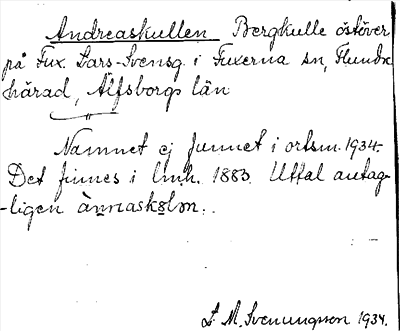 Andreaskullen Bergkulle östöver
på Fux. Lars-Svensg. i Fuxerna sn, Flundre
härad, Älfsborgs län
Namnet ej funnet i ortsm. 1934.
Det finnes i lmh. 1883. Uttal antag-
-ligen ànnaskɵlən.
S. M. Svenungsson 1934.